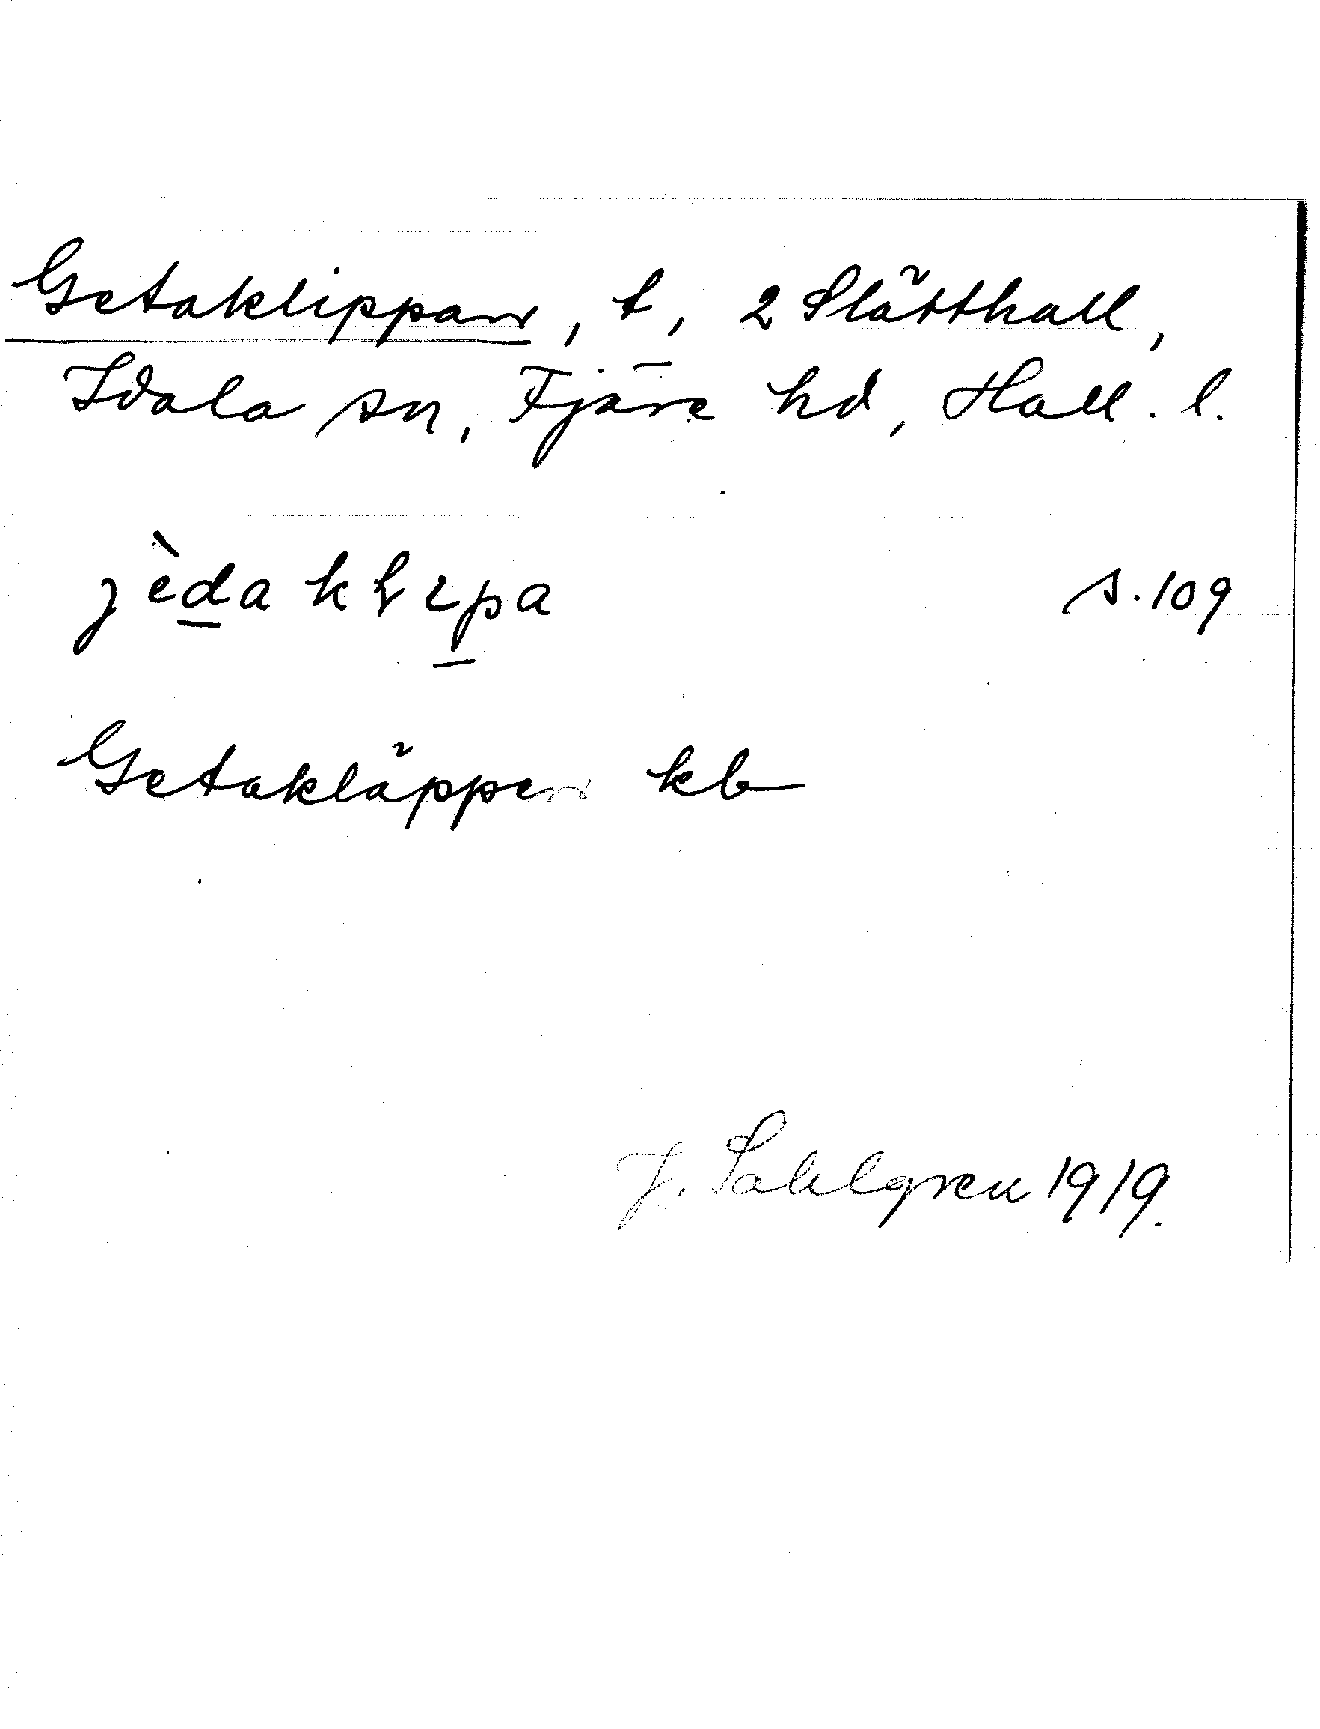 Getaklippan, t, 2 Slätthall,
Idala sn, Fjäre hd, Hall. l.
jèdaklɩpa s.109
Getakläppen kb
J. Sahlgren 1919.